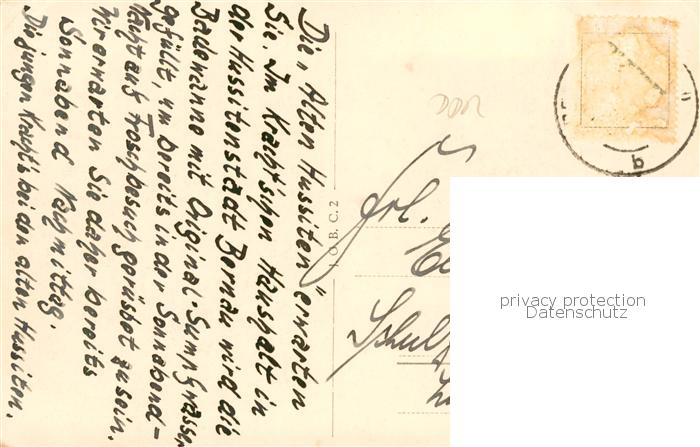 Die „Alten Hussiten" erwarten
Sie. Im Kracht'schen Haushalt in
der Hussitenstadt Bernau wird die
Badewanne mit Original-Sumpfwasser
gefüllt, um bereits in der Sonnabend-
Nacht auf Froschbesuch gerüstet zu sein.
Wir erwarten Sie daher bereits
Sonnabend Nachmittag.
Die jungen Kracht's bei den alten Hussiten.
J O B. C. 2
Frl.
Schul
privacy protection
Datenschutz